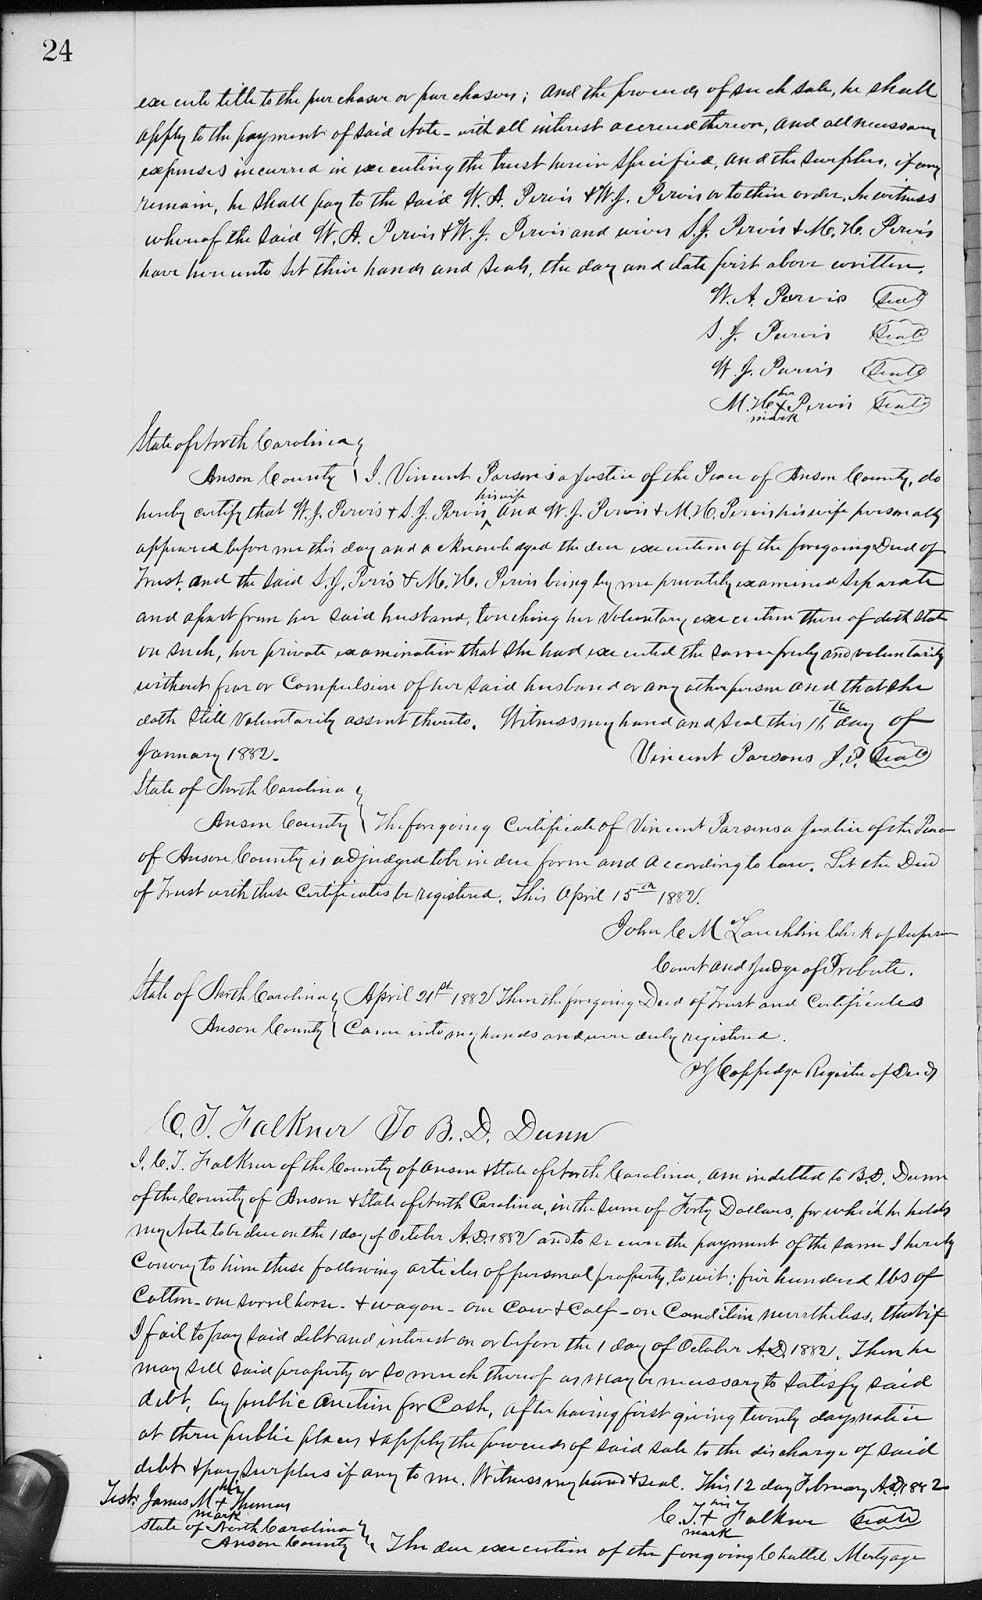 24
execute title to the purchaser or purchasers; and the proceeds of such sale, he shall
apply to the payment of said Note - with all interest accrued thereon, and all necessary
expenses incurred in executing the trust herein specified, and the surplus, if any
remain, he shall pay to the said W. A. Pervis & W. J. Pervis or to their order, In witness
whereof the said W. A. Pervis & W. J. Pervis and wives S. J. Pervis & M. H. Pervis
have hereunto set their hands and seals, the day and date first above written.
W. A. Pervis (Seal)
S. J. Purvis (Seal)
W. J. Purvis (Seal)
her
M. H. + Pervis (Seal)
mark
State of North Carolina
Anson County } I. Vincent Parsons a Justice of the Peace of Anson County, do
his wife
hereby certify that W. J. Pervis & S. J. Pervis ^ and W. J. Pervis & M. H. Pervis his wife personally
appeared before me this day and acknowledged the due execution of the foregoing Deed of
Trust. and the said S. J. Pervis & M. H. Pervis being by me privately examined separate
and apart from her said husband, touching her voluntary execution there of doth state
on such, her private examination that she had executed the same freely and voluntarily
without fear or Compulsion of her said husband or any other person and that she
doth still voluntarily assent thereto. Witness my hand and seal this 11th day of
January 1882. Vincent Parsons J. P. (Seal)
State of North Carolina
Anson County } The foregoing Certificate of Vincent Parsons a Justice of the Peace
of Anson County is adjudged to be in due form and according to law. Let the Deed
of Trust with these Certificates be registered. This April 15th 1882.
John C McLauchlin Clerk of Superior
Court and Judge of Probate.
State of North Carolina } April 21st 1882 Then the foregoing Deed of Trust and Certificates
Anson County } Came into my hands and were duly registered.
Coppedge Register of Deeds
C. T. Falkner To B. D. Dunn
I. C. T. Falkner of the County of Anson & State of North Carolina, am indebted to B. D. Dunn
of the County of Anson & State of North Carolina, in the sum of Forty Dollars, for which he holds
my Note to be due on the 1 day of October A. D. 1882 and to secure the payment of the same I hereby
Convey to him these following articles of personal property, to wit; five hundred lbs of
Cotton - one sorrel horse - & wagon - one Cow & Calf - on Condition nevertheless, that if
I fail to pay said debt and interest on or before the 1 day of October A. D. 1882. Then he
may sell said property or so much thereof as may be necessary to satisfy said
debt, by public auction for Cash, after having first giving twenty days notice
at three public places & apply the proceeds of said sale to the discharge of said
debt & pay surplus if any to me. Witness my hand & seal. This 12 day February A. D. 1882
his
Test: James M + Thomas
mark
his
C. T. + Falkner (Seal)
mark
State of North Carolina
Anson County } The due execution of the foregoing Chattel Mortgage